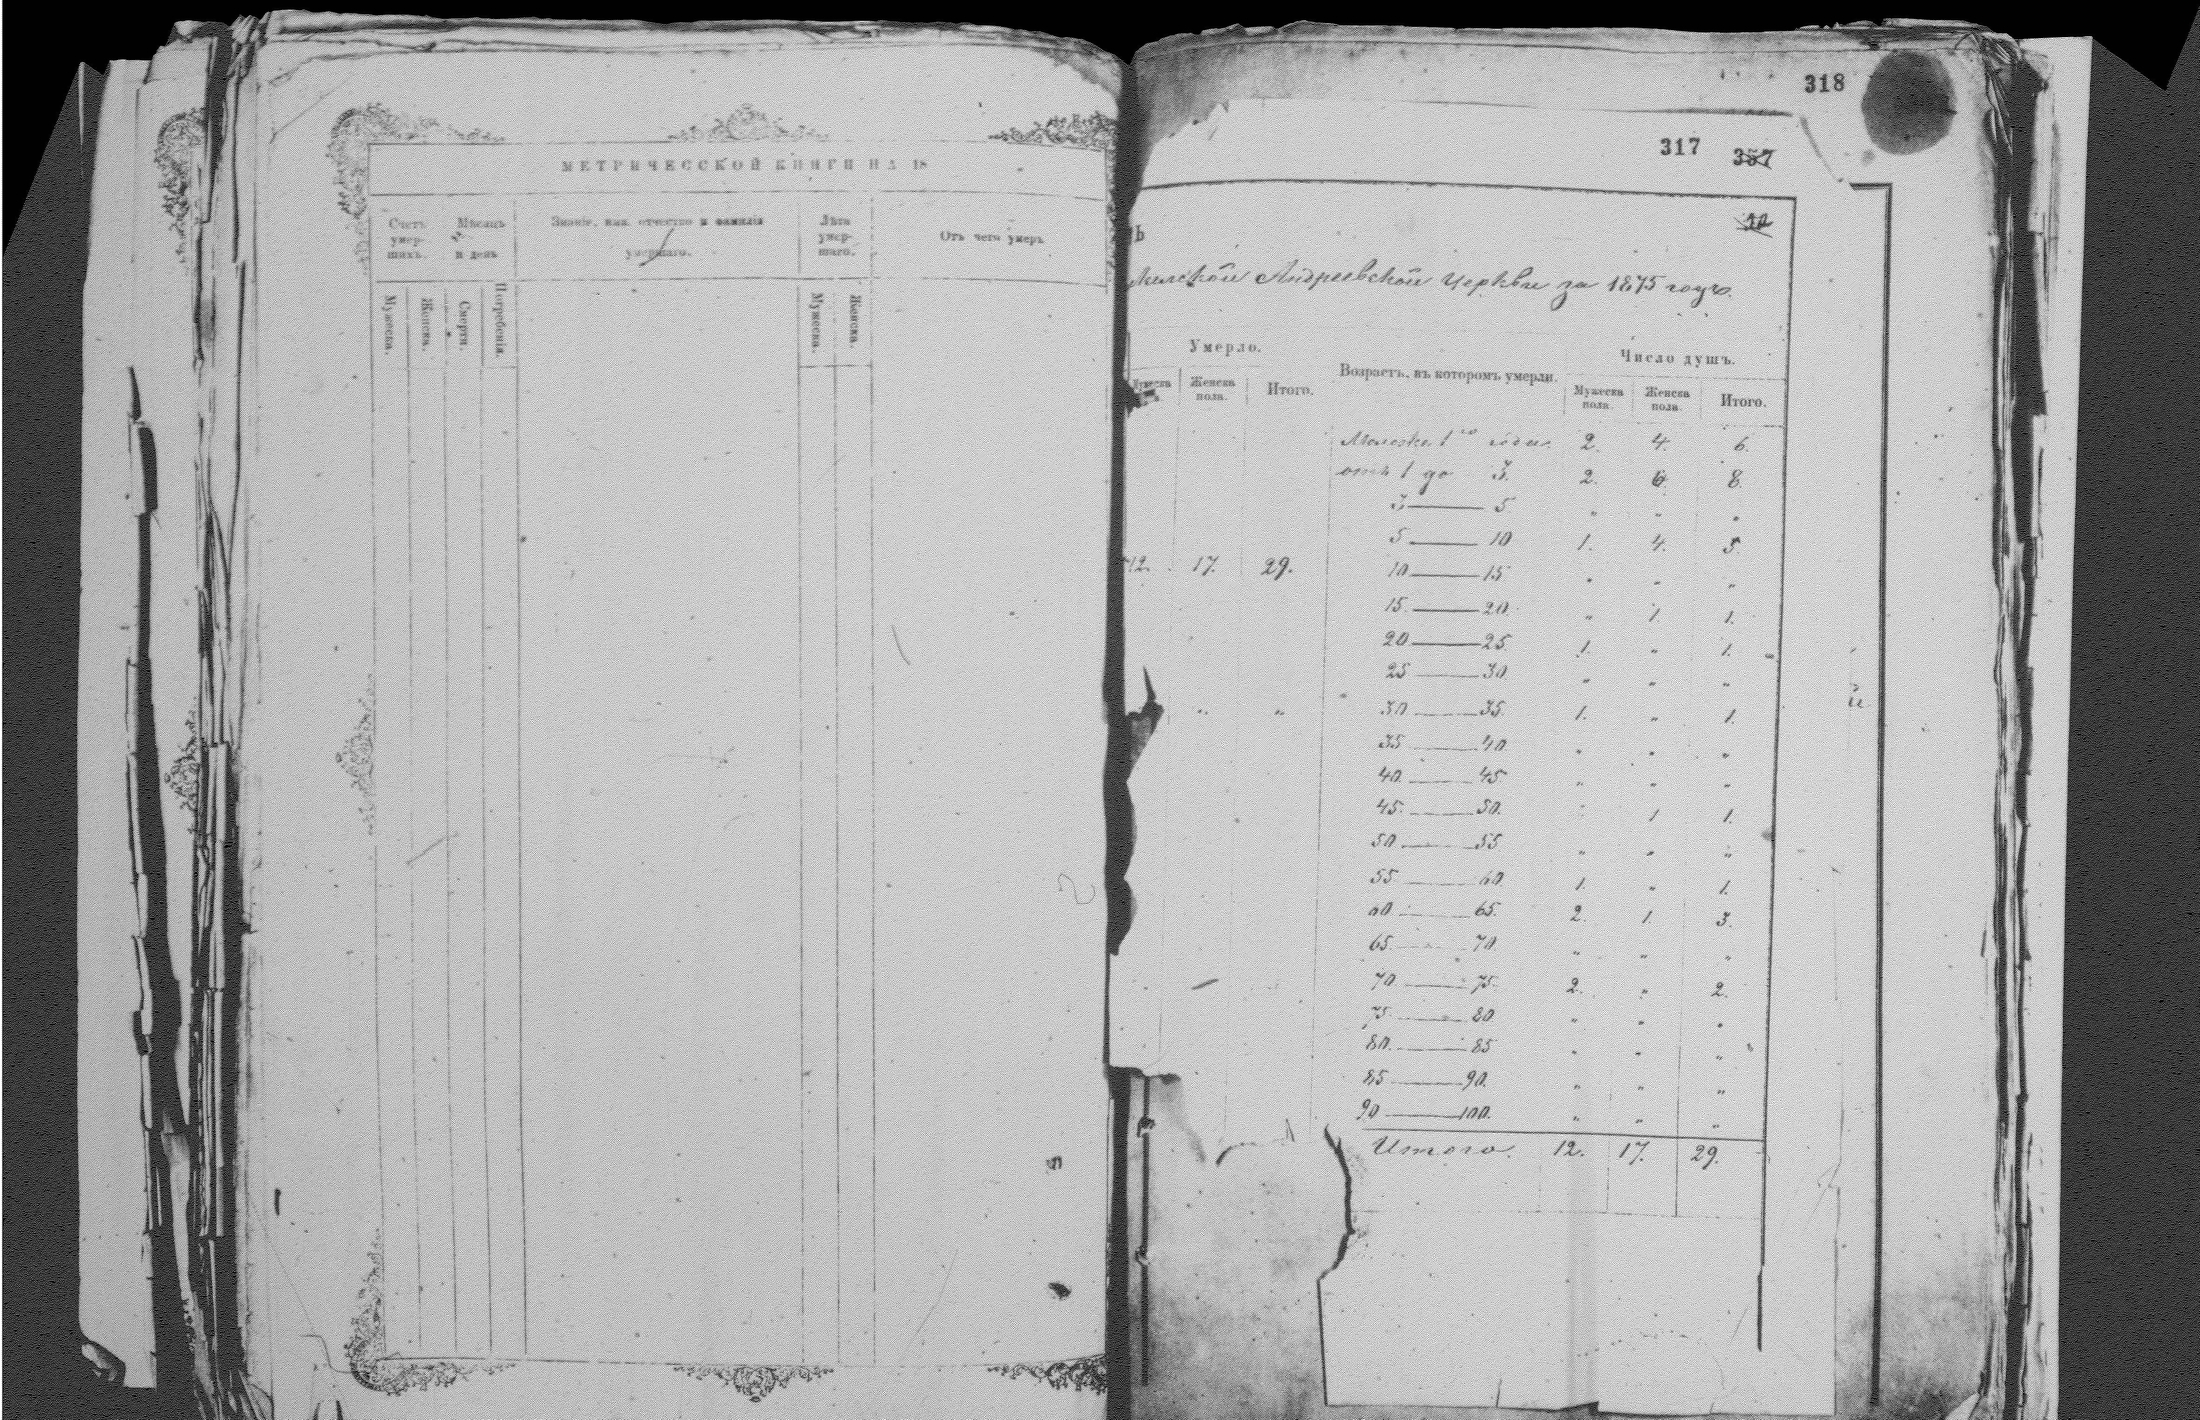 МЕТРИЧЕССКОЙ КНИГИ НА 18
Счетъ умер- шихъ.
Мѣсяцъ и день
Званіе, имя, отчество и фамилія умершаго.
Лѣта умер- шаго.
Отъ чего умеръ
Мужеска.
Женска.
Смерти.
Погребенія.
Мужеска.
Женска.
318
317 357
ь
Андреевской Церкви за 1875 годъ.
Умерло.
Возрастъ, въ которомъ умерли.
Число душъ.
Женска пола.
Итого.
Мужеска пола.
Женска пола.
Итого.
Моложе 1го года 2. 4. 6.
отъ 1 до 3. 2. 6. 8.
3 — 5 „ „ „
5 — 10 1. 4. 5.
12. 17. 29.
10 — 15 „ „ „
15. — 20 „ 1 1.
20 — 25 1. „ 1.
25 — 30 „ „ „
„ „
30 — 35. 1. „ 1.
35 — 40 „ „ „
40 — 45 „ „ „
45. — 50. „ 1 1.
50 — 55 „ „ „
55 — 60. 1. „ 1.
60 — 65. 2. 1. 3.
65 — 70 „ „ „
70 — 75. 2. „ 2.
75. — 80 „ „ „
80. — 85 „ „ „
85 — 90. „ „ „
90 — 100. „ „ „
Итого. 12. 17. 29.
й